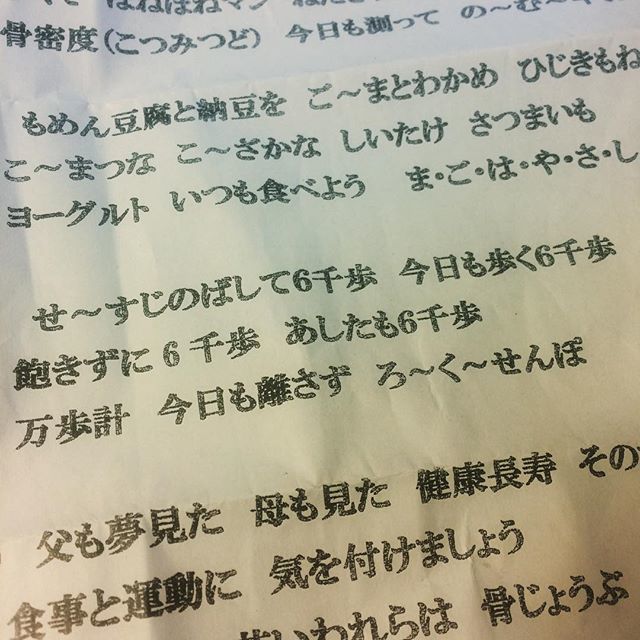 ほねほねマン
骨密度(こつみつど) 今日も測って の～む～
もめん豆腐と納豆を ご～まとわかめ ひじきもね
こ～まつな こ～ざかな しいたけ さつまいも
ヨーグルト いつも食べよう ま・ご・は・や・さ・し
せ～すじのばして6千歩 今日も歩く6千歩
飽きずに6千歩 あしたも6千歩
万歩計 今日も離さず ろ～く～せんぽ
父も夢見た 母も見た 健康長寿 その
食事と運動に 気を付けましょう
われらは 骨じょうぶ